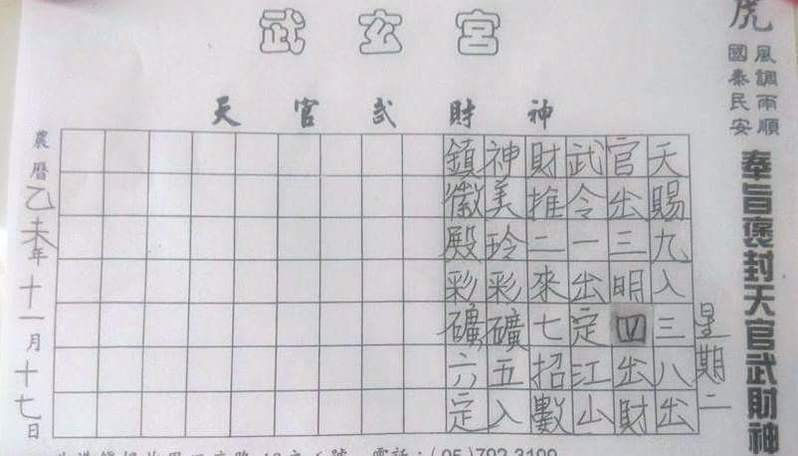 武玄宮
天官武財神
虎
風調雨順
國泰民安
奉旨褒封天官武財神
星期二
天賜九入三八出
官出三明四出財
武令一出定江山
財推二來七招數
神美玲彩礦五入
鎮徽殿彩礦六定
農曆乙未年十一月十七日